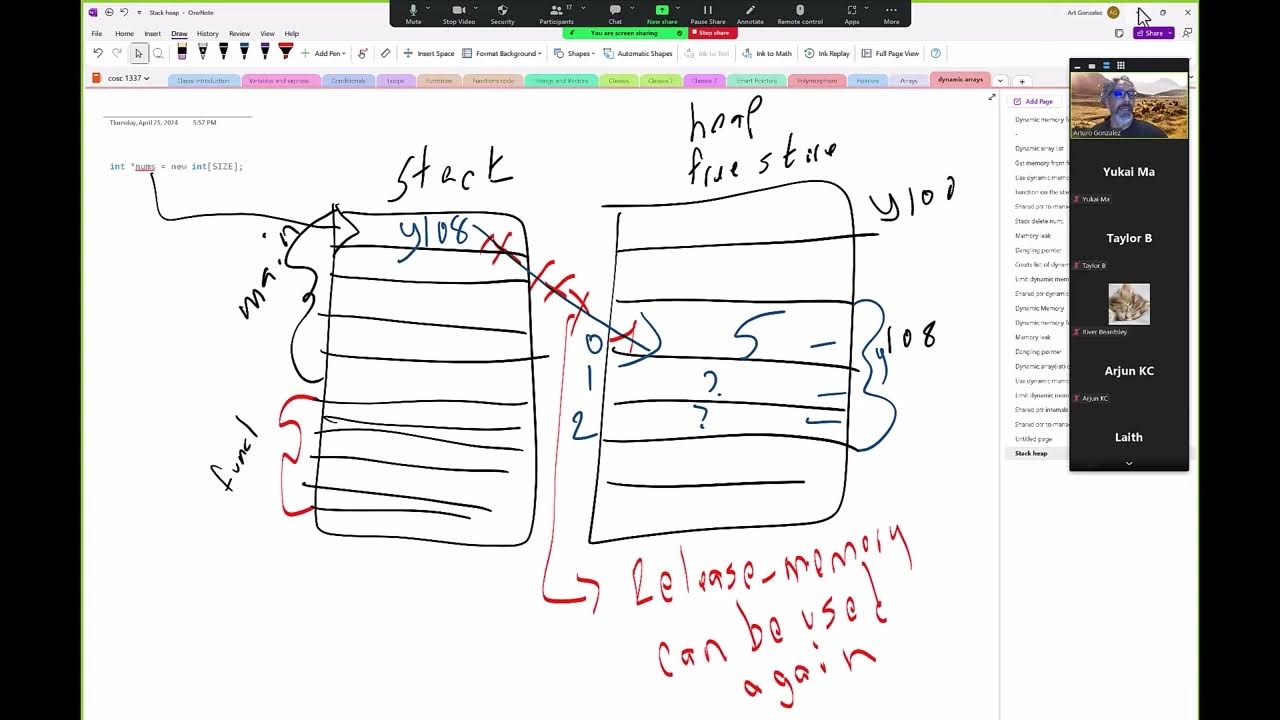 Stack heap - OneNote
Mute
Stop Video
Security
Participants
17
Chat
New share
Pause Share
Annotate
Remote control
Apps
More
You are screen sharing
Stop share
Art Gonzalez
AG
File
Home
Insert
Draw
History
Review
View
Help
Share
Add Pen
Insert Space
Format Background
Shapes
Automatic Shapes
Ink to Text
Ink to Math
Ink Replay
Full Page View
cosc 1337
Classes introduction
Variables and express
Conditionals
Loops
Functions
Functions code
Strings and Vectors
Classes
Classes 2
Classes 3
Smart Pointers
Polymorphism
Pointers
Arrays
dynamic arrays
Thursday, April 25, 2024 5:57 PM
int *nums = new int[SIZE];
Stack
heap
free store
y100
main
y108
0 5
1 ?
2 ?
y108
func1
Release-memory
can be used
again
Add Page
Dynamic memory f
-
Dynamic array list
Get memory from f
Use dynamic mem
Function on the sta
Shared ptr to mana
Stack delete num;
Memory leak
Dangling pointer
Create list of dynam
Limit dynamic mem
Shared ptr dynamic
Dynamic Memory
Dynamic memory f
Memory leak
Dangling pointer
Dynamic array(listi
Use dynamic mem
Limit dynamic mem
Shared ptr internals
Shared ptr to mana
Untitled page
Stack heap
Arturo Gonzalez
Yukai Ma
Yukai Ma
Taylor B
Taylor B
River Beardsley
Arjun KC
Arjun KC
Laith